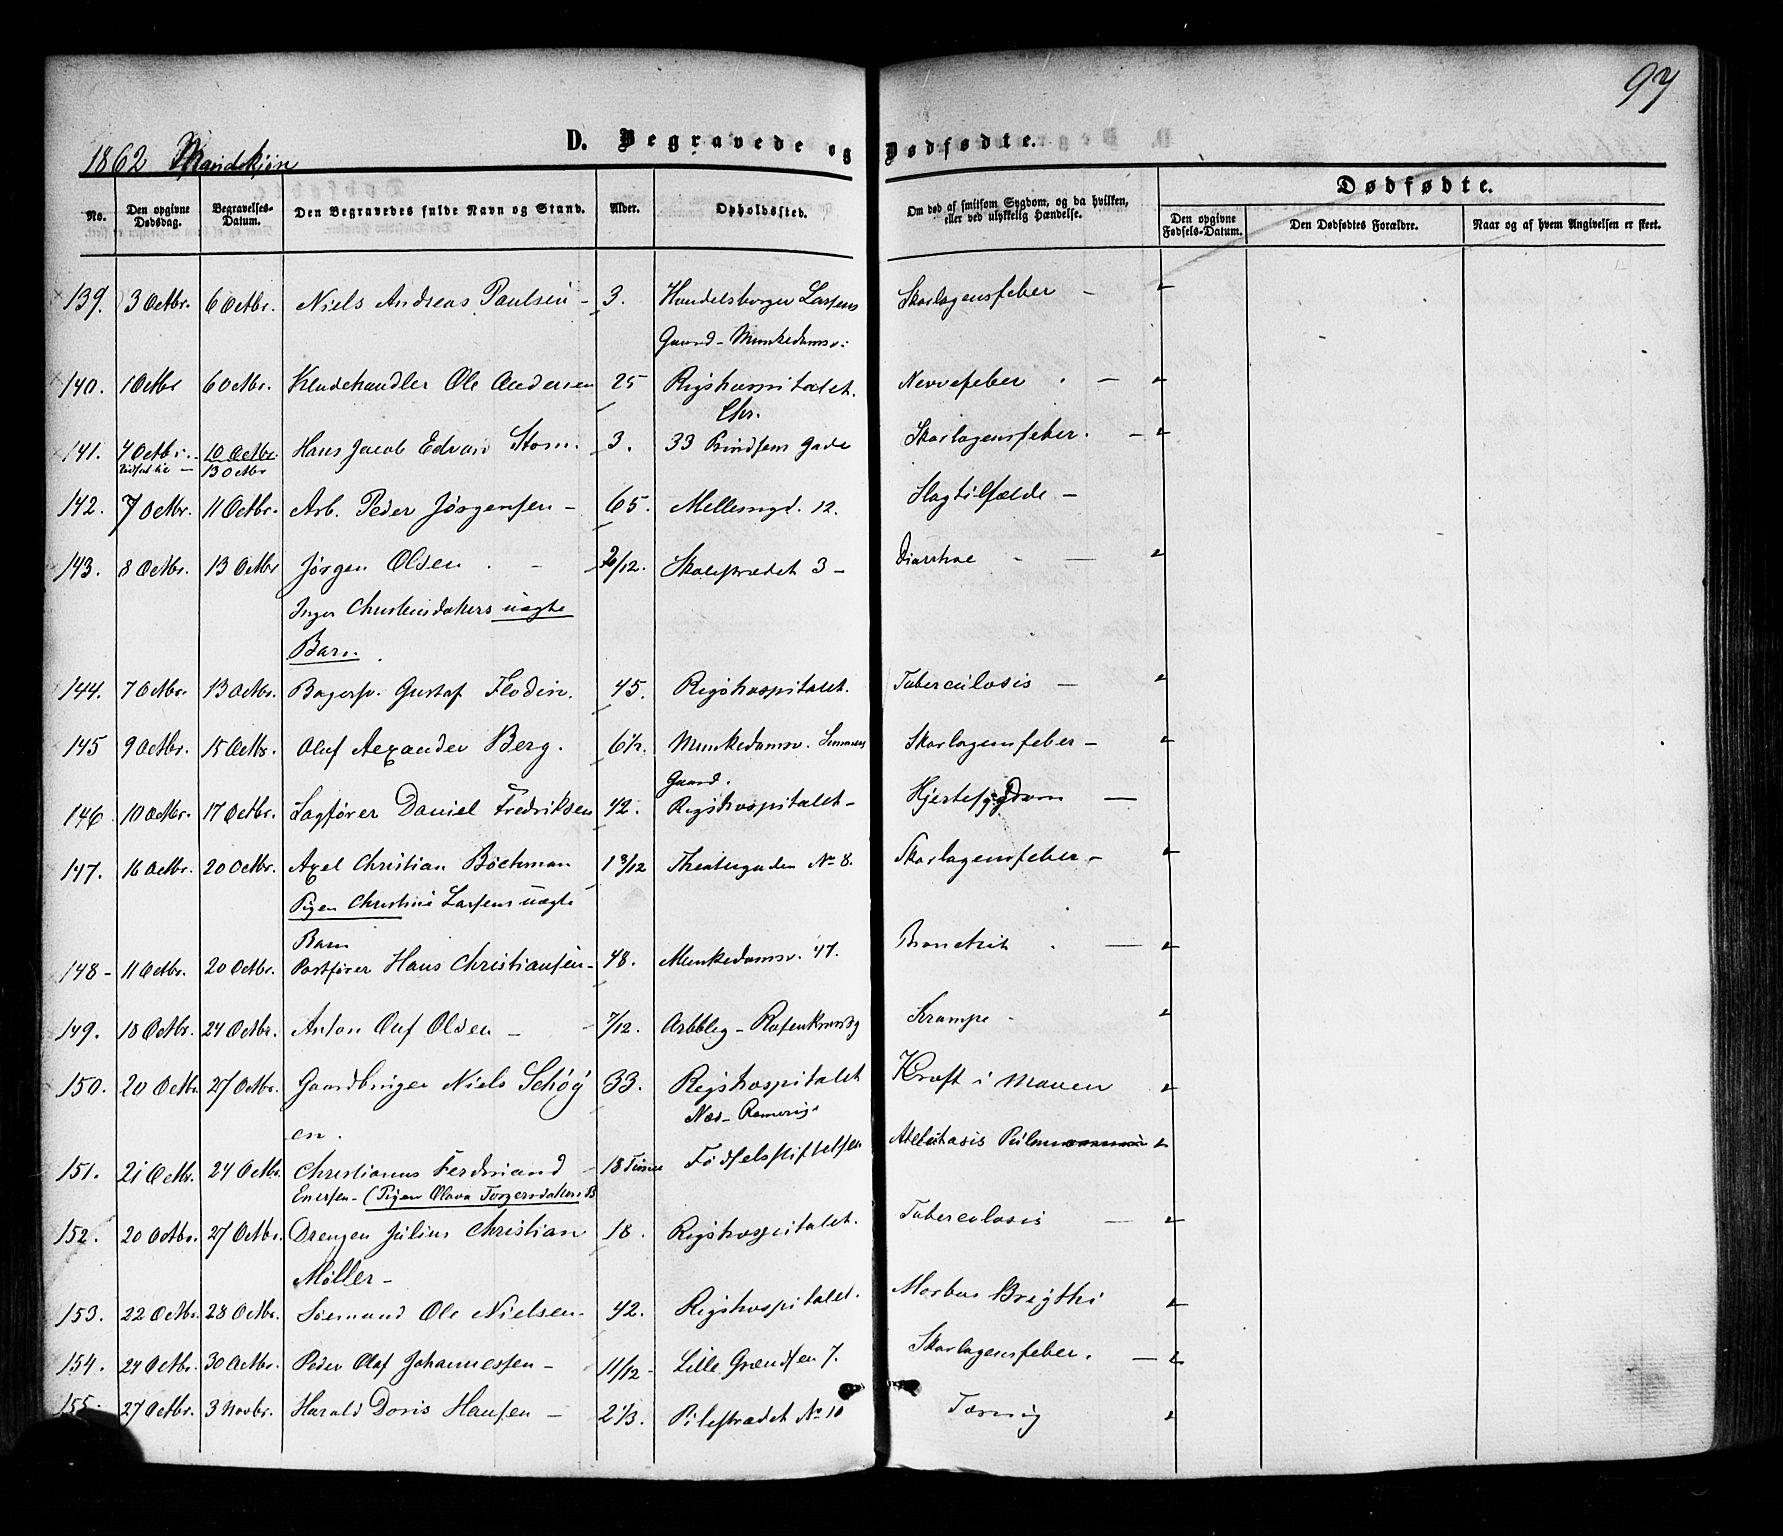 97
1862 Mandskjøn
D. Begravede og Dødfødte.
No. Den opgivne Dødsdag. Begravelses-Datum. Den Begravedes fulde Navn og Stand. Alder. Opholdssted. Om død af smitsom Sygdom, og da hvilken, eller ved ulykkelig Hændelse. Dødfødte.
Den opgivne Fødsels-Datum. Den Dødfødtes Forældre. Naar og af hvem Angivelsen er skeet.
139. 3 Octbr. 6 Octbr. Niels Andreas Paulsen - 3. Handelsborger Larsens Skarlagensfeber -
Gaard - Munkedamsv:
140. 1 Octbr 6 Octbr. Kludehandler Ole Andersen 25 Rigshospitalet. Nervefeber -
Chr.
141. 4 Octbr. 10 Octbr. Hans Jacob Edvard Storm. 3. 33 Prindsens Gade Skarlagensfeber. -
13 Octbr
142. 7 Octbr. 11 Octbr. Arb. Peder Jørgensen - 65. Mellemgd. 12. Slagtilfælde -
143. 8 Octbr. 13 Octbr Jørgen Olsen - 2/12. Skolestrædet 3 - Diarrhoe -
Inger Christensdatters uægte
Barn.
144. 7 Octbr. 13 Octbr. Bagersv. Gustaf Flodin. 45. Rigshospitalet. Tuberculosis -
145 9 Octbr. 15 Octbr. Oluf Aexander Berg. 6 1/2. Munkedamsv. Skarlagensfeber -
Gaard.
146 10 Octbr. 17 Octbr. Lagfører Daniel Fredriksen 42. Rigshospitalet - Hjertesygdom -
147. 16 Octbr. 20 Octbr. Axel Christian Böchman 1 3/12 Theatergaden No 8. Skarlagensfeber -
Pigen Christine Larsens uægte
Barn
148 - 11 Octbr. 20 Octbr. Postfører Hans Christiansen - 48. Munkedamsv. 47. -
149. 18 Octbr. 24 Octbr. Anton Oluf Olsen - 7/12. Arbblig - Rosenkrantzg Krampe -
150. 20 Octbr 27 Octbr. Gaardbruger Niels Schøy 33. Rigshospitalet Kræft i Maven
en. Næs - Romerige
151. 21 Octbr. 24 Octbr. Christianus Ferdinand - 18 Timer Fødselsstiftelsen Atelectasis
Enersen - (Pigen Olava Torgersdatters B
152. 20 Octbr. 27 Octbr. Drengen Julius Christian 18. Rigshospitalet. Tuberculosis -
Møller -
153. 22 Octbr. 28 Octbr. Sømand Ole Nielsen - 42. Rigshospitalet. Morbus Brigthi
154. 24 Octbr. 30 Octbr. Peder Olaf Johannessen - 11/12 - Lille Grændsen 7. Skarlagensfeber. -
155. 27 Octbr. 3 Novbr. Harald Doris Hansen - 2 1/3. Pilestrædet No 10 Tæring